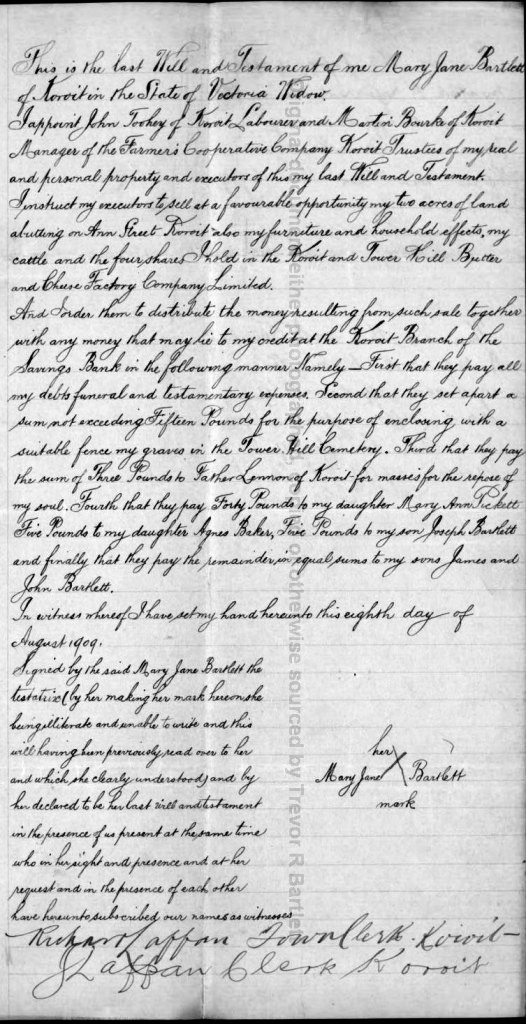 This is the last Will and Testament of me Mary Jane Bartlett
of Koroit in the State of Victoria Widow.
I appoint John Toohey of Koroit Labourer and Martin Bourke of Koroit
Manager of the Farmer's Cooperative Company Koroit Trustees of my real
and personal property and executors of this my last Will and Testament.
I instruct my executors to sell at a favourable opportunity my two acres of land
abutting on Ann Street Koroit also my furniture and household effects, my
cattle and the four shares I hold in the Koroit and Tower Hill Butter
and Cheese Factory Company Limited.
And I order them to distribute the money resulting from such sale together
with any money that may lie to my credit at the Koroit Branch of the
Savings Bank in the following manner Namely — First that they pay all
my debts funeral and testamentary expenses. Second that they set apart a
sum not exceeding Fifteen Pounds for the purpose of enclosing with a
suitable fence my graves in the Tower Hill Cemetery. Third that they pay
the sum of Three Pounds to Father Lennon of Koroit for masses for the repose of
my soul. Fourth that they pay Forty Pounds to my daughter Mary Ann Pickett
Five Pounds to my daughter Agnes Baker, Five Pounds to my son Joseph Bartlett
and finally that they pay the remainder in equal sums to my sons James and
John Bartlett.
In witness whereof I have set my hand hereunto this eighth day of
August 1909.
Signed by the said Mary Jane Bartlett the
testatrix (by her making her mark hereon, she
being illiterate and unable to write and this
will having been previously read over to her
and which she clearly understood) and by
her declared to be her last will and testament
in the presence of us present at the same time
who in her sight and presence and at her
request and in the presence of each other
have hereunto subscribed our names as witnesses
her
Mary Jane X Bartlett
mark
Richard Laffan Town Clerk Koroit
J Laffan Clerk Koroit
otherwise sourced by Trevor R Bartlett